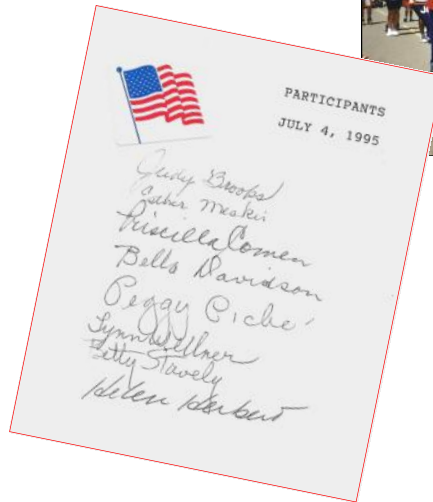 PARTICIPANTS
JULY 4, 1995
Judy Brooks
Esther Meskin
Priscilla Comen
Bella Davidson
Peggy Piche'
Lynn Wellner
Betty Stavely
Helen Herbert